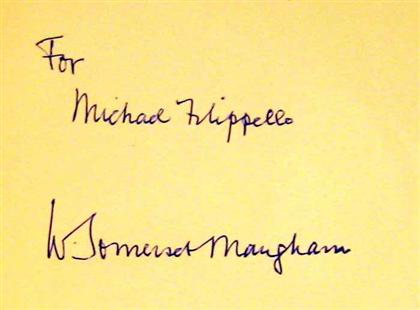 For
Michael Filippello
W. Somerset Maugham